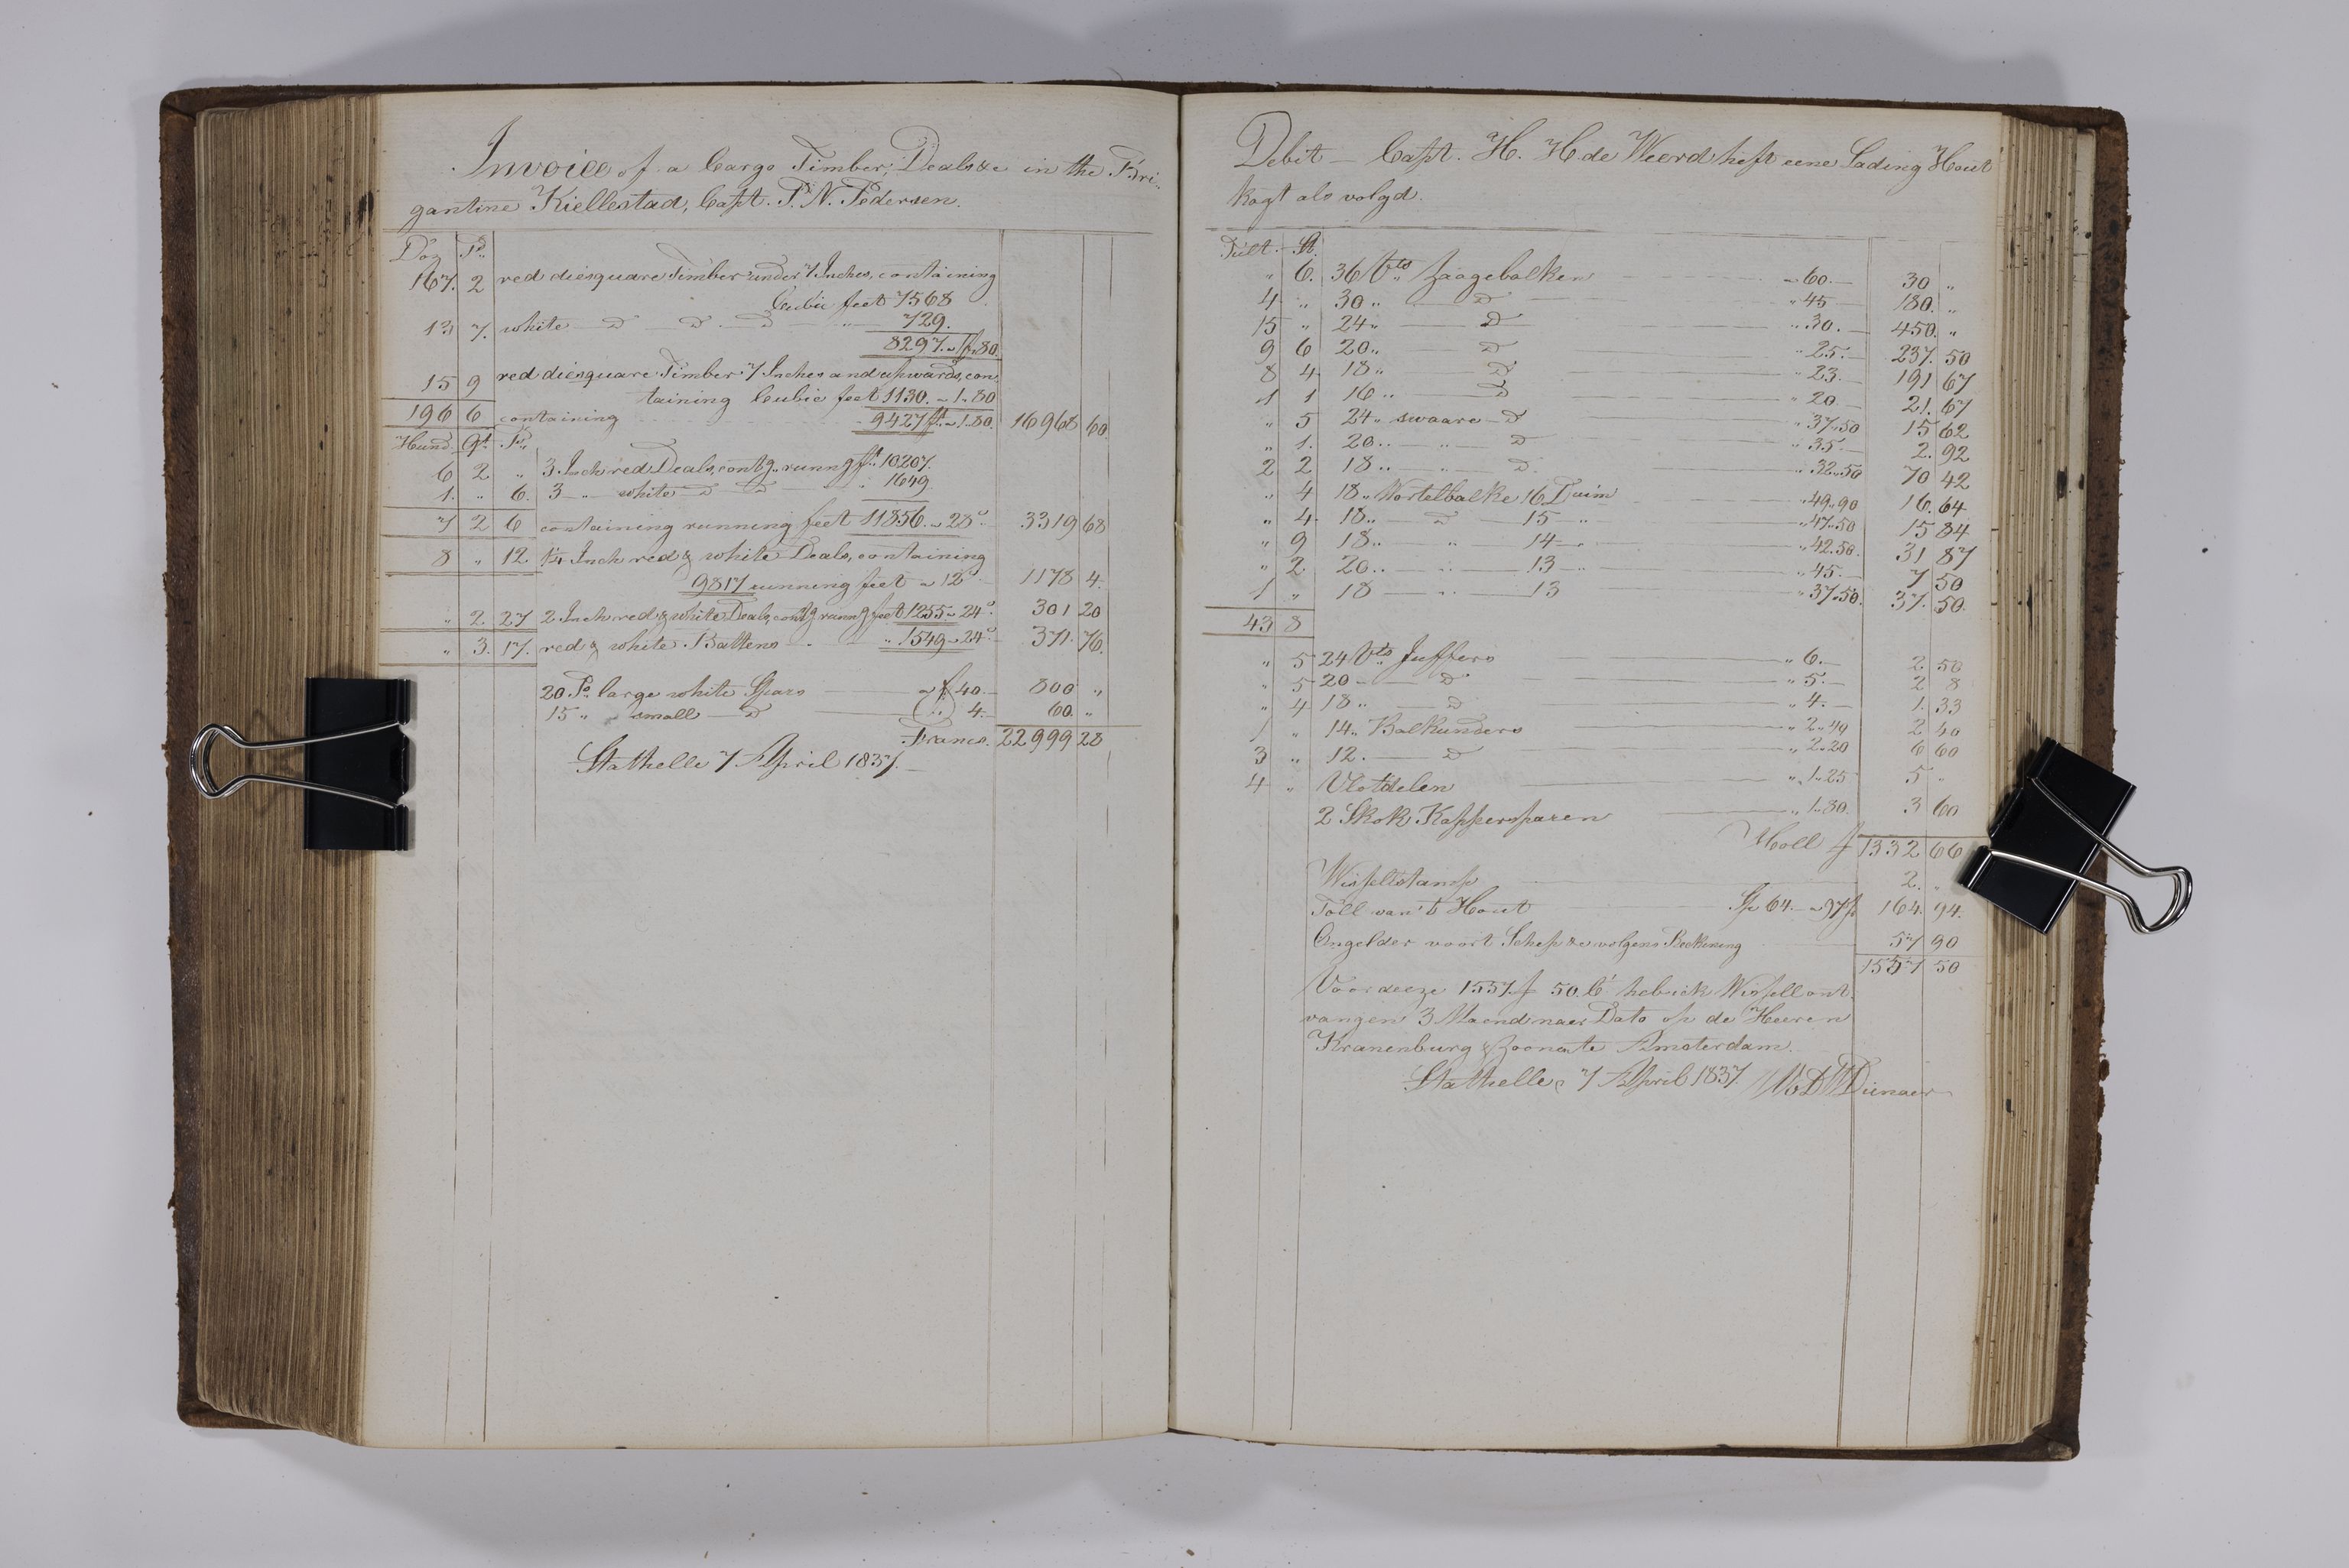 Invoice of a Cargo Timber, Deals &c in the Bri-
gantine Kiellestad, Capt. P. N. Pedersen.
Doz Ps.
167. 2 red diesquare Timber under 7 Inches, containing
Cubic feet 7568
13 7. white D D. D " 729.
8297. a f 1.80.
15 9 red diesquare Timber 7 Inches and upwards, con-
taining Cubic feet 1130. a 1.80
196 6 containing 9427 ft. a 1.80. 16968 60
Hund. Qt. Ps.
6 2 " 3 Inch red Deals, contg. runng ft. 10207.
1. " 6. 3 " white D D " 1649.
7 2 6 containing running feet 11856. a 28 c. 3319 68
8 " 12 1¼ Inch red & white Deals, containing
9817 running feet a 12 c. 1178 4.
" 2. 27 2 Inch red & white Deals, contg runng feet 1255. a 24 c. 301 20
" 3. 17. red & white Battens " 1549 a 24 c. 371. 76.
20 Ps. large white Spars a f 40. 800 "
15 " small D " 4. 60. "
Francs. 22999 28
Stathelle 7 April 1837.
Debit Capt. H. H. de Weerd heft eene Lading Hout
kogt als volgd.
Tult. St.
" 6. 36 Vts Zaagebalken " 60. 30 "
4 " 30 " D " 45 180. "
15 " 24 " D " 30. 450. "
9 6 20 " D " 25. 237. 50
8 4 18 " D " 23. 191 67
1 1 16 " D " 20 21. 67
" 5 24 " swaare D " 37.50 15 62
" 1. 20 " " D " 35. 2. 92
2 2 18 " " D. " 32.50 70 42
" 4 18 " Wortelbalke 16 Duim " 49.90 16. 64
" 4 18 " D 15 " " 47.50 15 84
" 9 18 " " 14 " " 42.50. 31 87
" 2 20 " " 13 " " 45. 7 50
1 " 18 " 13 " 37.50. 37. 50.
43 8
" 5 24 Vts Juffers " 6. 2 50
" 5 20 D " 5. 2 8
" 4 18 " D " 4. 1. 33
1 " 14 " Balkunders " 2.40 2 40
3 " 12. D " 2.20 6 60
4 " Vlotdelen " 1.25 5 "
2 Skok Kappersparen " 1.80. 3 60
Holl f 1332 66
Wisselstamp 2. "
Toll van't Hout Sp 64. a 97 ß 164. 94.
Ongelder voort Schep &c volgens Reckening 57 90
1557 50
Voor deeze 1557 f 50 C. heb ick Wissell ont-
vangen 3 Maend naer Dato op de Heeren
Kranenburg & Zoonen te Amsterdam.
Stathelle, 7 April 1837.